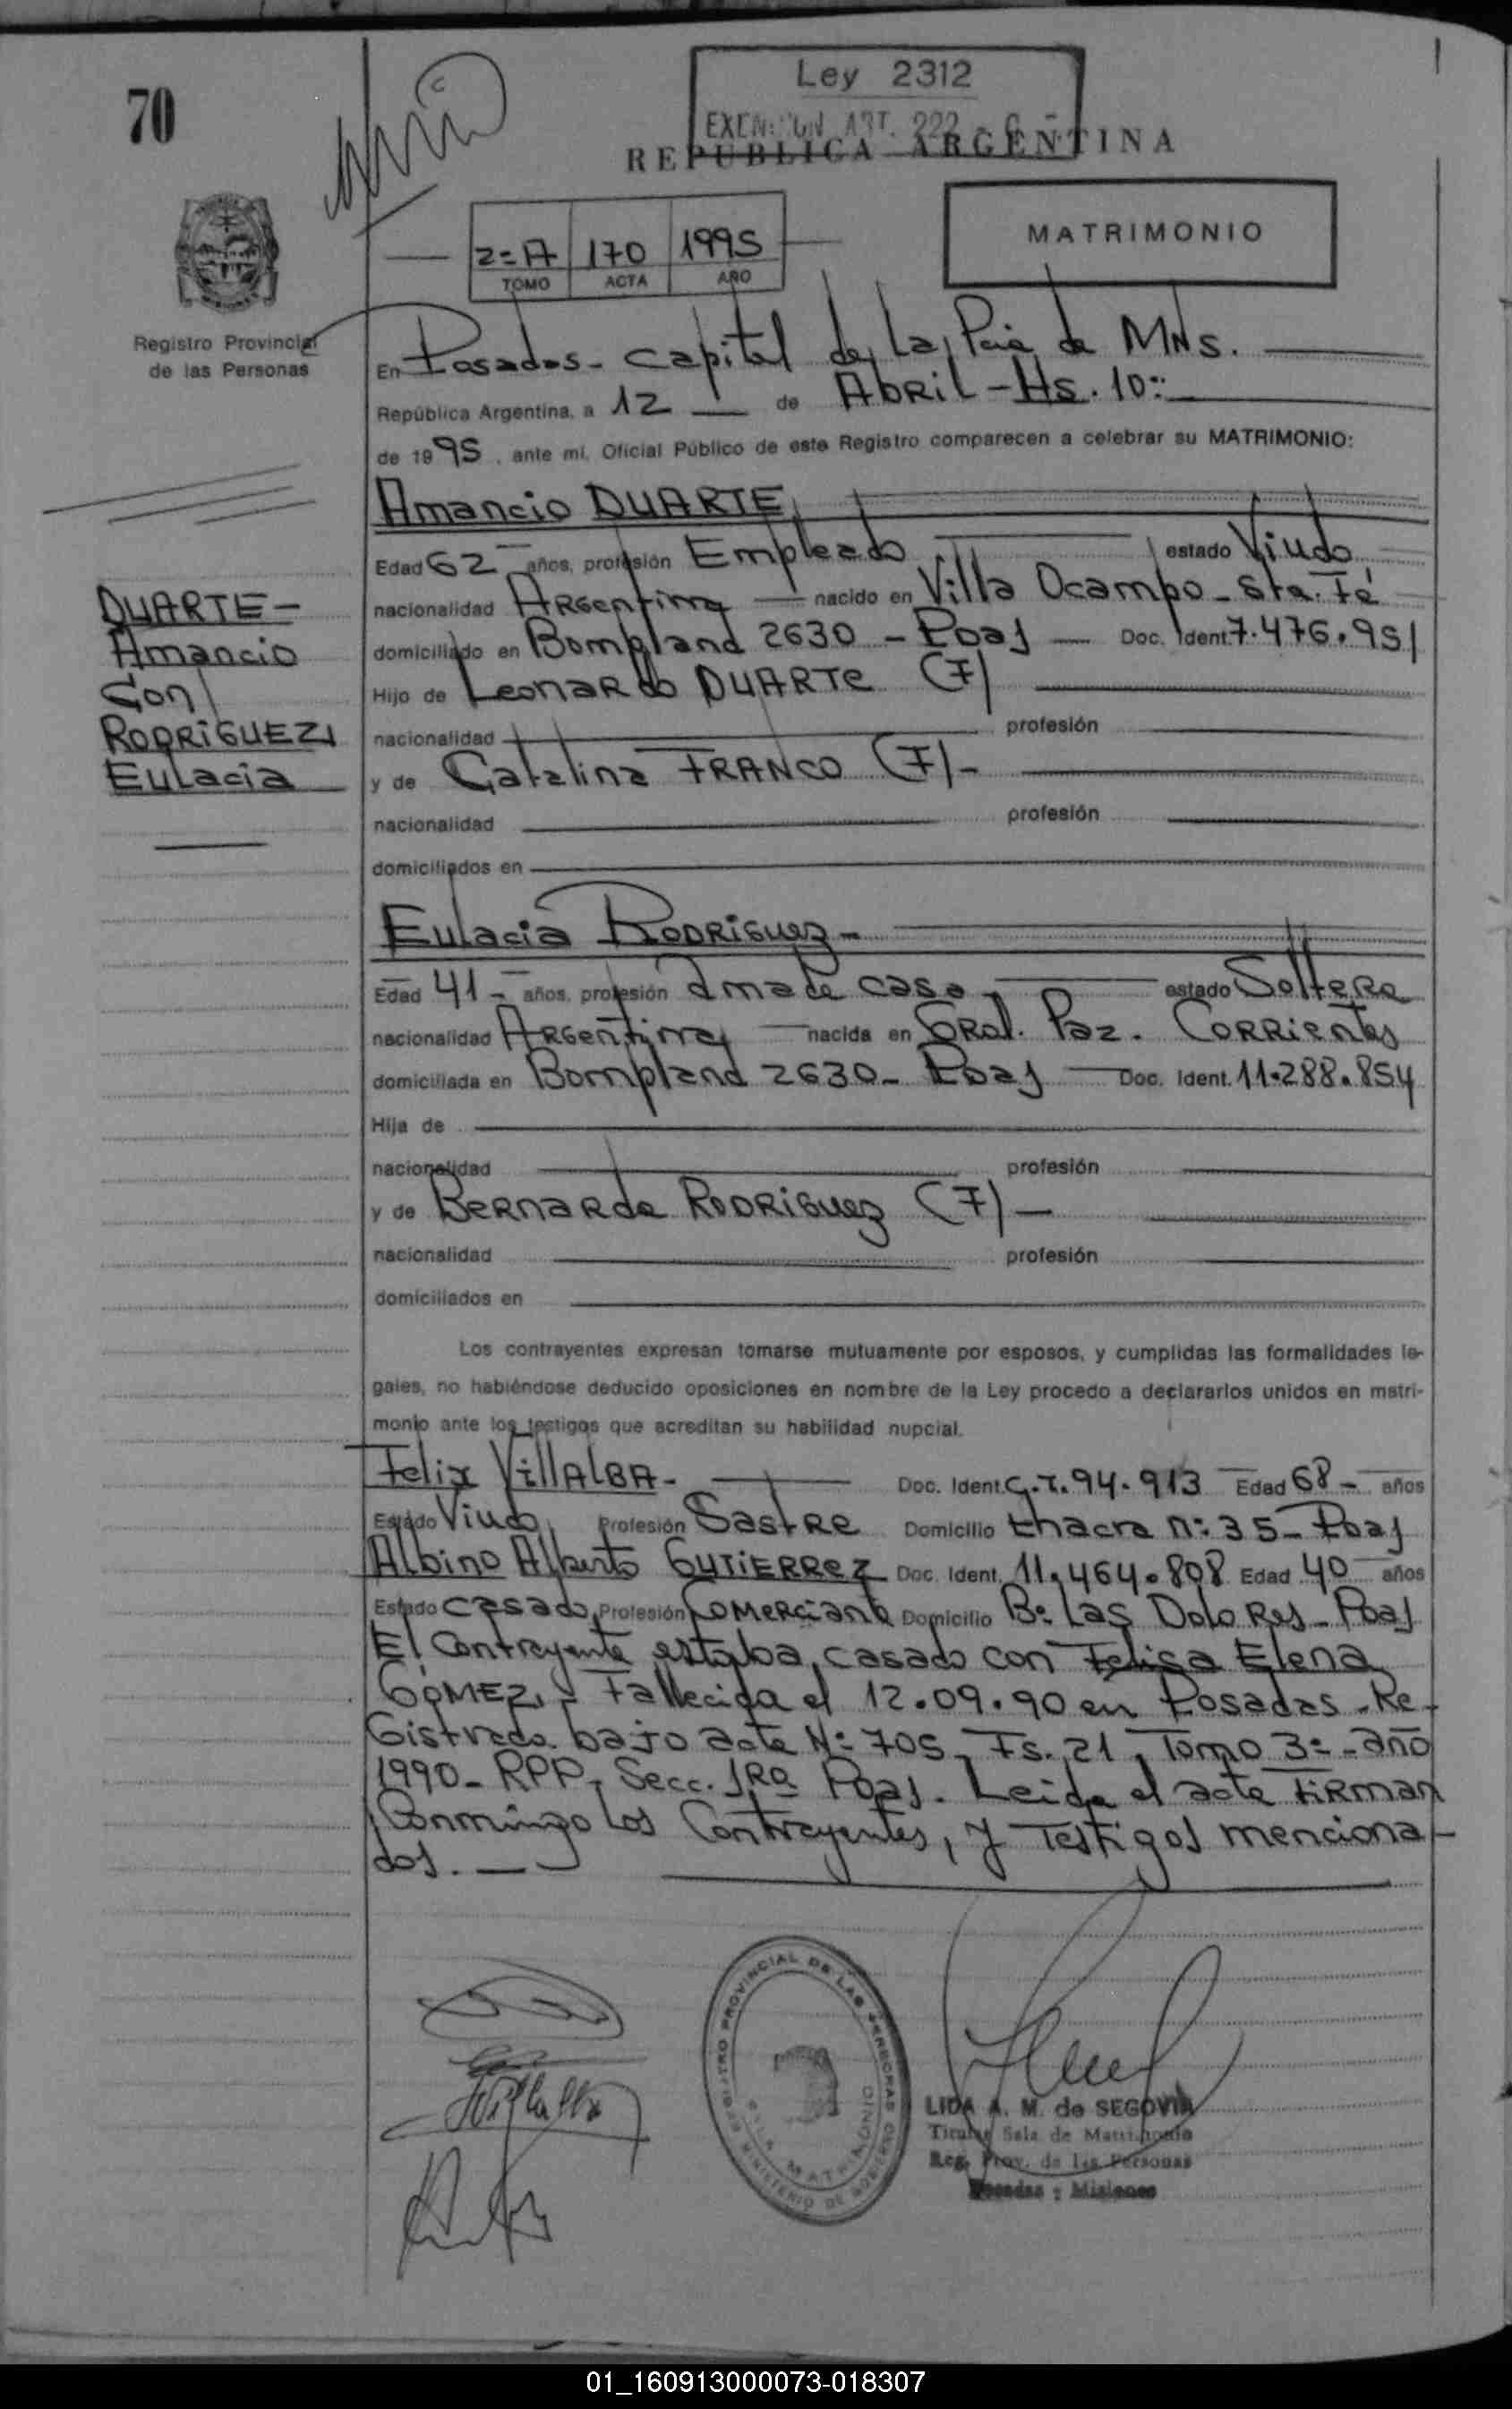 70
Ley 2312
EXENCION ART. 222
REPUBLICA ARGENTINA
MATRIMONIO
2=A 170 1995
TOMO ACTA AÑO
Registro Provincial
de las Personas
En Posadas - Capital de La Pcia de MNS.
República Argentina, a 12 de Abril - Hs. 10:
de 1995, ante mí, Oficial Público de este Registro comparecen a celebrar su MATRIMONIO:
Amancio DUARTE
Edad 62 años, profesión Empleado estado Viudo
nacionalidad Argentina nacido en Villa Ocampo - Sta. Fé
domiciliado en Bompland 2630 - Pdas Doc. Ident. 7.476.951
Hijo de Leonardo DUARTE (F)
nacionalidad profesión
y de Catalina FRANCO (F) -
nacionalidad profesión
domiciliados en
DUARTE -
Amancio
Con
RODRIGUEZ
Eulacia
Eulacia RODRIGUEZ -
Edad 41 - años, profesión Ama de casa estado Soltera
nacionalidad Argentina nacida en Gral. Paz. Corrientes
domiciliada en Bompland 2630 - Pdas Doc. Ident. 11.288.854
Hija de
nacionalidad profesión
y de Bernarda RODRIGUEZ (F) -
nacionalidad profesión
domiciliados en
Los contrayentes expresan tomarse mutuamente por esposos, y cumplidas las formalidades le-
gales, no habiéndose deducido oposiciones en nombre de la Ley procedo a declararlos unidos en matri-
monio ante los testigos que acreditan su habilidad nupcial.
Felix VillALBA - Doc. Ident. 94.913 Edad 68 - años
Estado Viudo, Profesión Sastre Domicilio Chacra Nº 35 - Pdas
Albino Alberto GUTIERREZ Doc. Ident. 11.464.808 Edad 40 años
Estado Casado, Profesión Comerciante Domicilio Bº Las Dolores - Pdas
El Contrayente estaba casado con Felisa Elena
GÓMEZ, - Fallecida el 12.09.90 en Posadas - Re-
gistrada bajo acta Nº 705, Fs. 21, Tomo 3º - año
1990 - RPP, Secc. 1Ra Pdas. Leida el acta firman
Conmingo los Contrayentes, y Testigos menciona-
dos. -
REGISTRO PROVINCIAL DE LAS PERSONAS
MINISTERIO DE GOBIERNO
SALA MATRIMONIO
LIDA A. M. de SEGOVIA
Titular Sala de Matrimonio
Reg. Prov. de las Personas
Posadas - Misiones
01_160913000073-018307